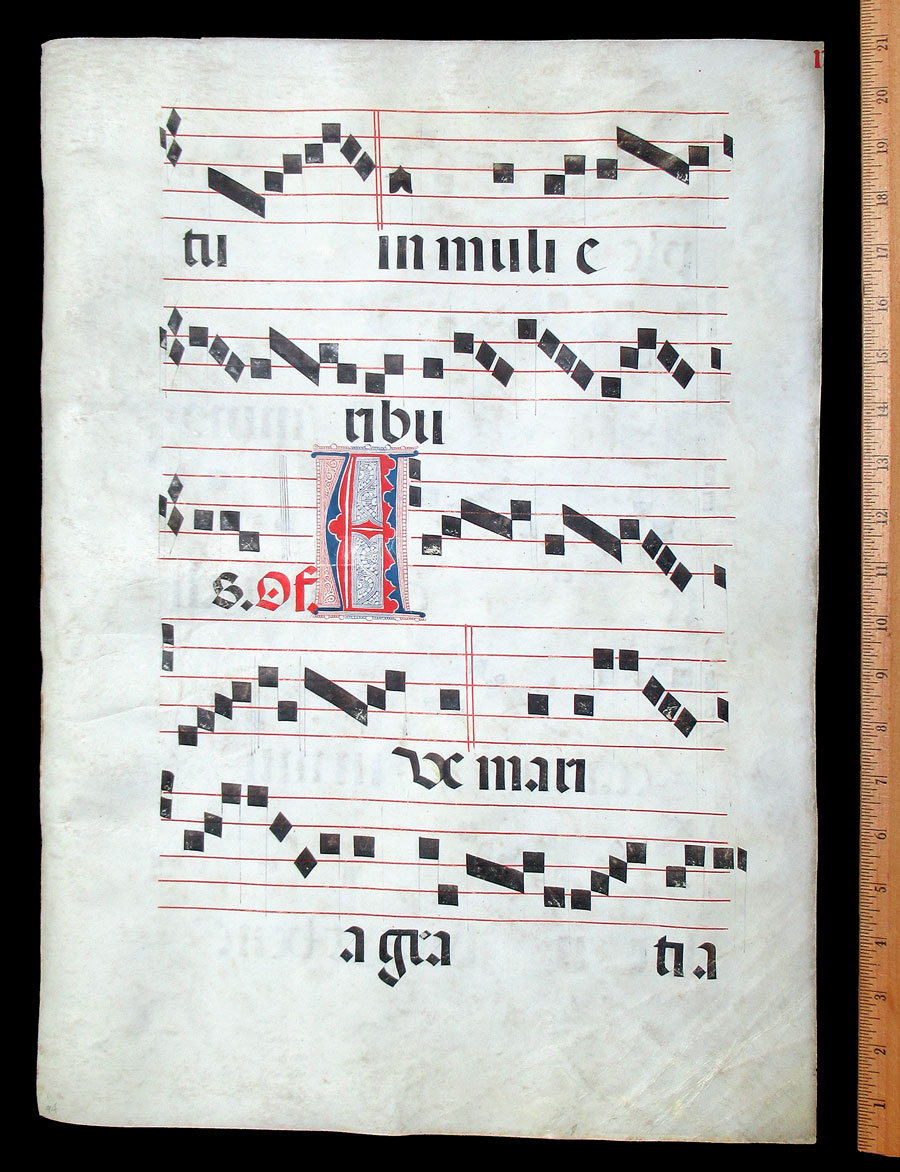 tu in muli e
ribu
s. Of. A
ve mari
a gra tia
21
20
19
18
17
16
15
14
13
12
11
10
9
8
7
6
5
4
3
2
1